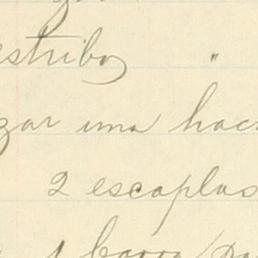 estribo "
zar una hac
2 escoplos
1 barra pa